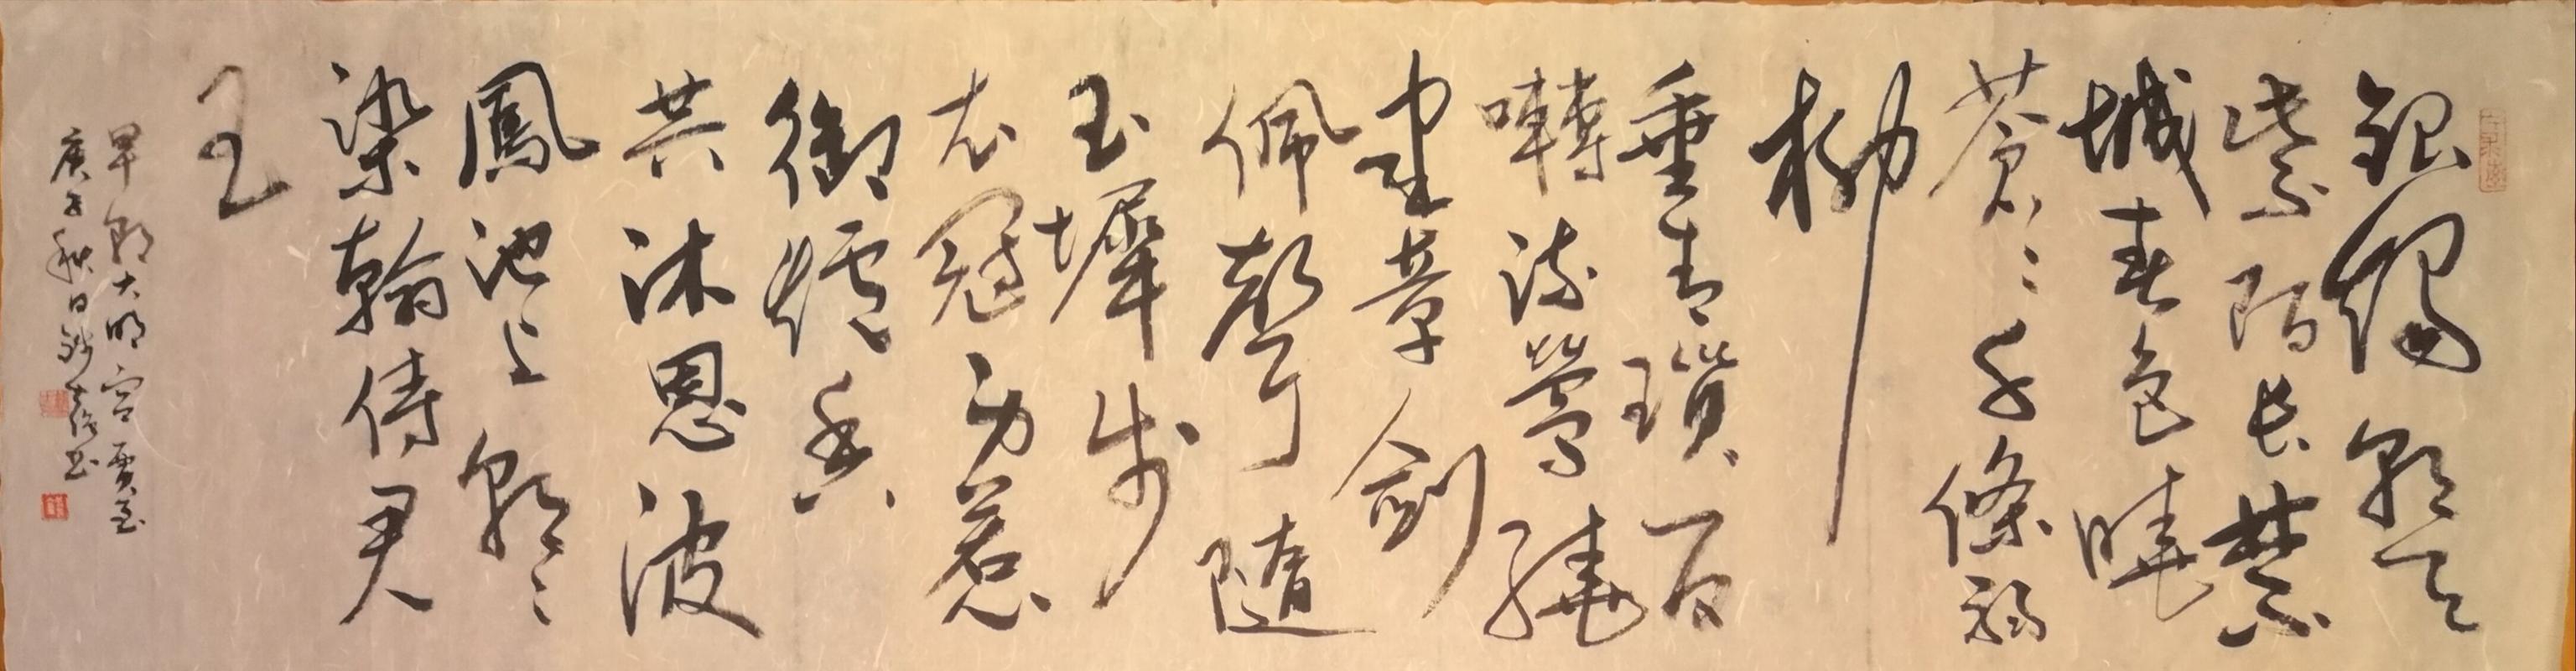 銀燭朝天
紫陌長禁
城春色曉
蒼々千條弱
柳
垂青瑣百
囀流鶯繞
建章劍
佩聲隨
玉墀步
衣冠身惹
御爐香
共沐恩波
鳳池上朝々
染翰侍君
王
早朝大明宮賈至
庚子秋日